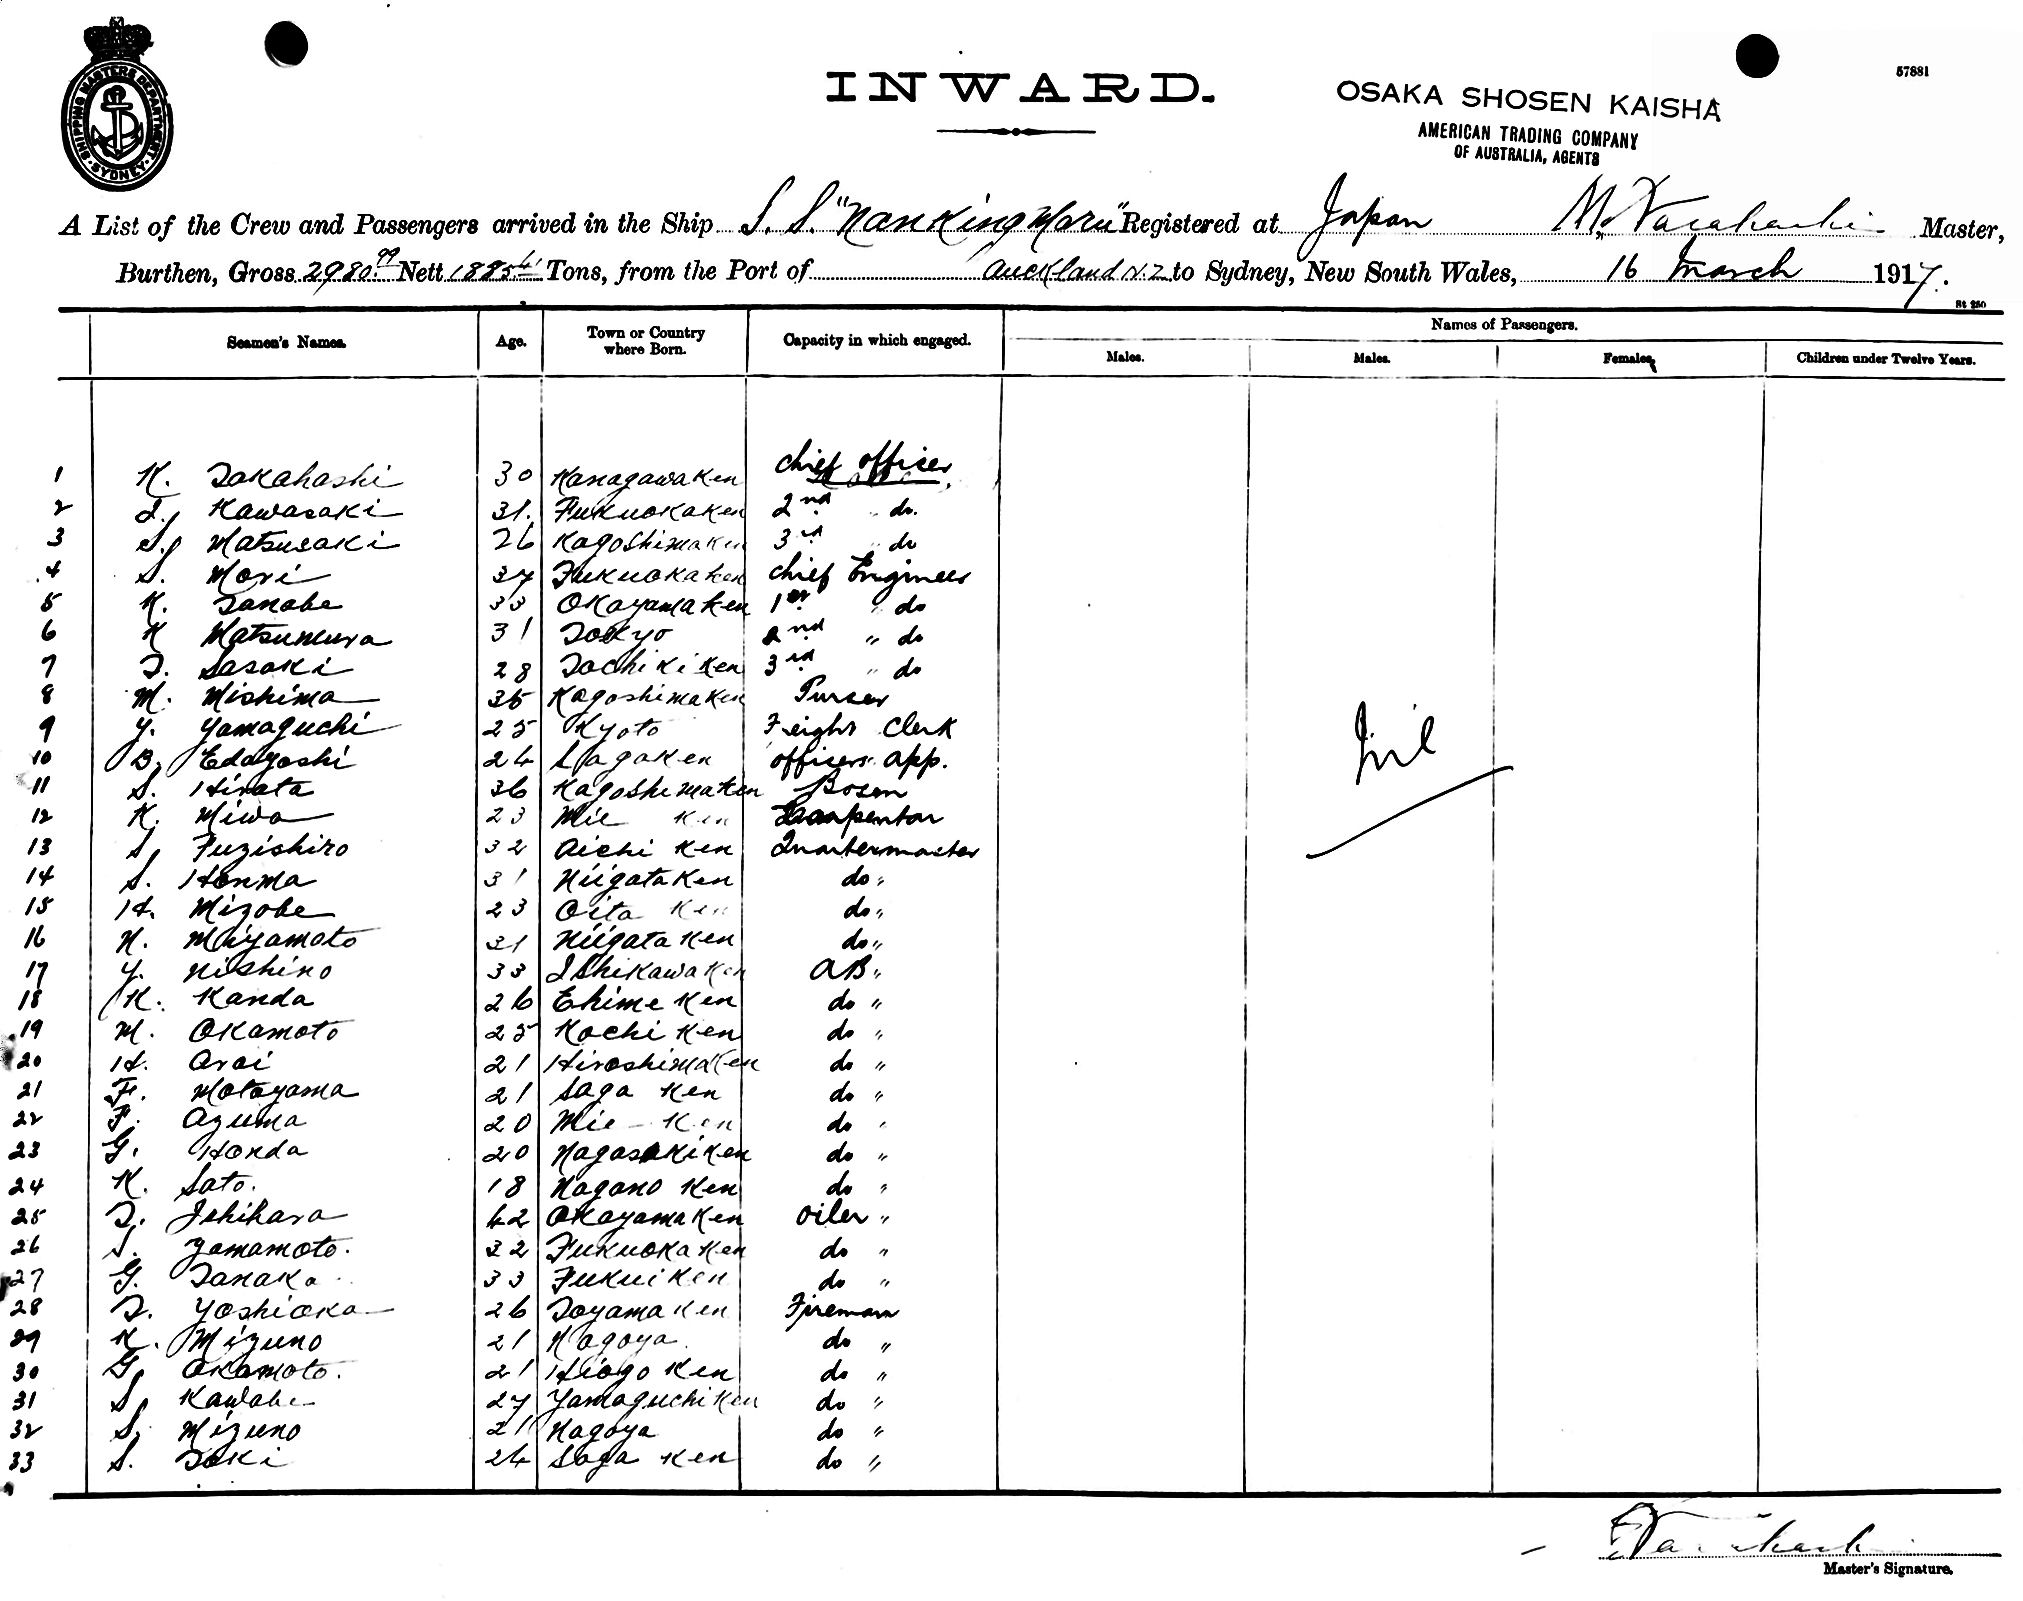 SHIPPING MASTERS DEPARTMENT. SYDNEY.
INWARD.
57881
OSAKA SHOSEN KAISHA
AMERICAN TRADING COMPANY
OF AUSTRALIA, AGENTS
A List of the Crew and Passengers arrived in the Ship S. S. "Nanking Maru" Registered at Japan Master,
Burthen, Gross 2980.99 Nett 1885 Tons, from the Port of Auckland N.Z to Sydney, New South Wales, 16 March 1917.
Seamen's Names. Age. Town or Country where Born. Capacity in which engaged. Names of Passengers.
Males. Males. Females. Children under Twelve Years.
1 K. Takahashi 30 Kanagawa Ken chief officer
2 Kawasaki 31. Fukuoka Ken 2nd " do.
3 S. Matsusaki 26 Kagoshima Ken 3rd " do
4 S. Mori 37 Fukuoka Ken chief Engineer
5 K. Tanabe 33 Okayama Ken 1er " do
6 K Matsumura 31 Tokyo 2nd " do
7 T. Sasaki 28 Tochiki Ken 3rd " do
8 M. Mishima 35 Kagoshima Ken Purser
9 Y. Yamaguchi 25 Kyoto Freight Clerk
10 B. Edayoshi 24 Saga Ken officers app.
11 S. Hirata 36 Kagoshima Ken Bosen
12 K. Miwa 23 Mie Ken Carpentar
13 S. Fuzishiro 32 Aichi Ken Quartermaster
14 S. Honma 31 Niigata Ken do "
15 H. Mizobe 23 Oita Ken do "
16 N. Miyamoto 31 Niigata Ken do "
17 Y. Nishino 33 Ishikawa Ken AB "
18 K. Kanda 26 Ehime Ken do "
19 M. Okamoto 25 Kochi Ken do "
20 H. Arai 21 Hiroshima Ken do "
21 F. Motoyama 21 Saga Ken do "
22 F. Azuma 20 Mie Ken do "
23 G. Honda 20 Nagasaki Ken do "
24 K. Sato. 18 Nagano Ken do "
25 T. Ishihara 42 Okayama Ken Oiler "
26 S. Yamamoto. 32 Fukuoka Ken do "
27 G. Tanaka 33 Fukui Ken do "
28 T. Yoshioka 26 Toyama Ken Fireman
29 K. Mizuno 21 Nagoya do "
30 G. Okamoto. 21 Hiogo Ken do "
31 S. Kawabe 27 Yamaguchi Ken do "
32 S. Mizuno 21 Nagoya do "
33 S. Toki 24 Saga Ken do "
Nil
Master's Signature.